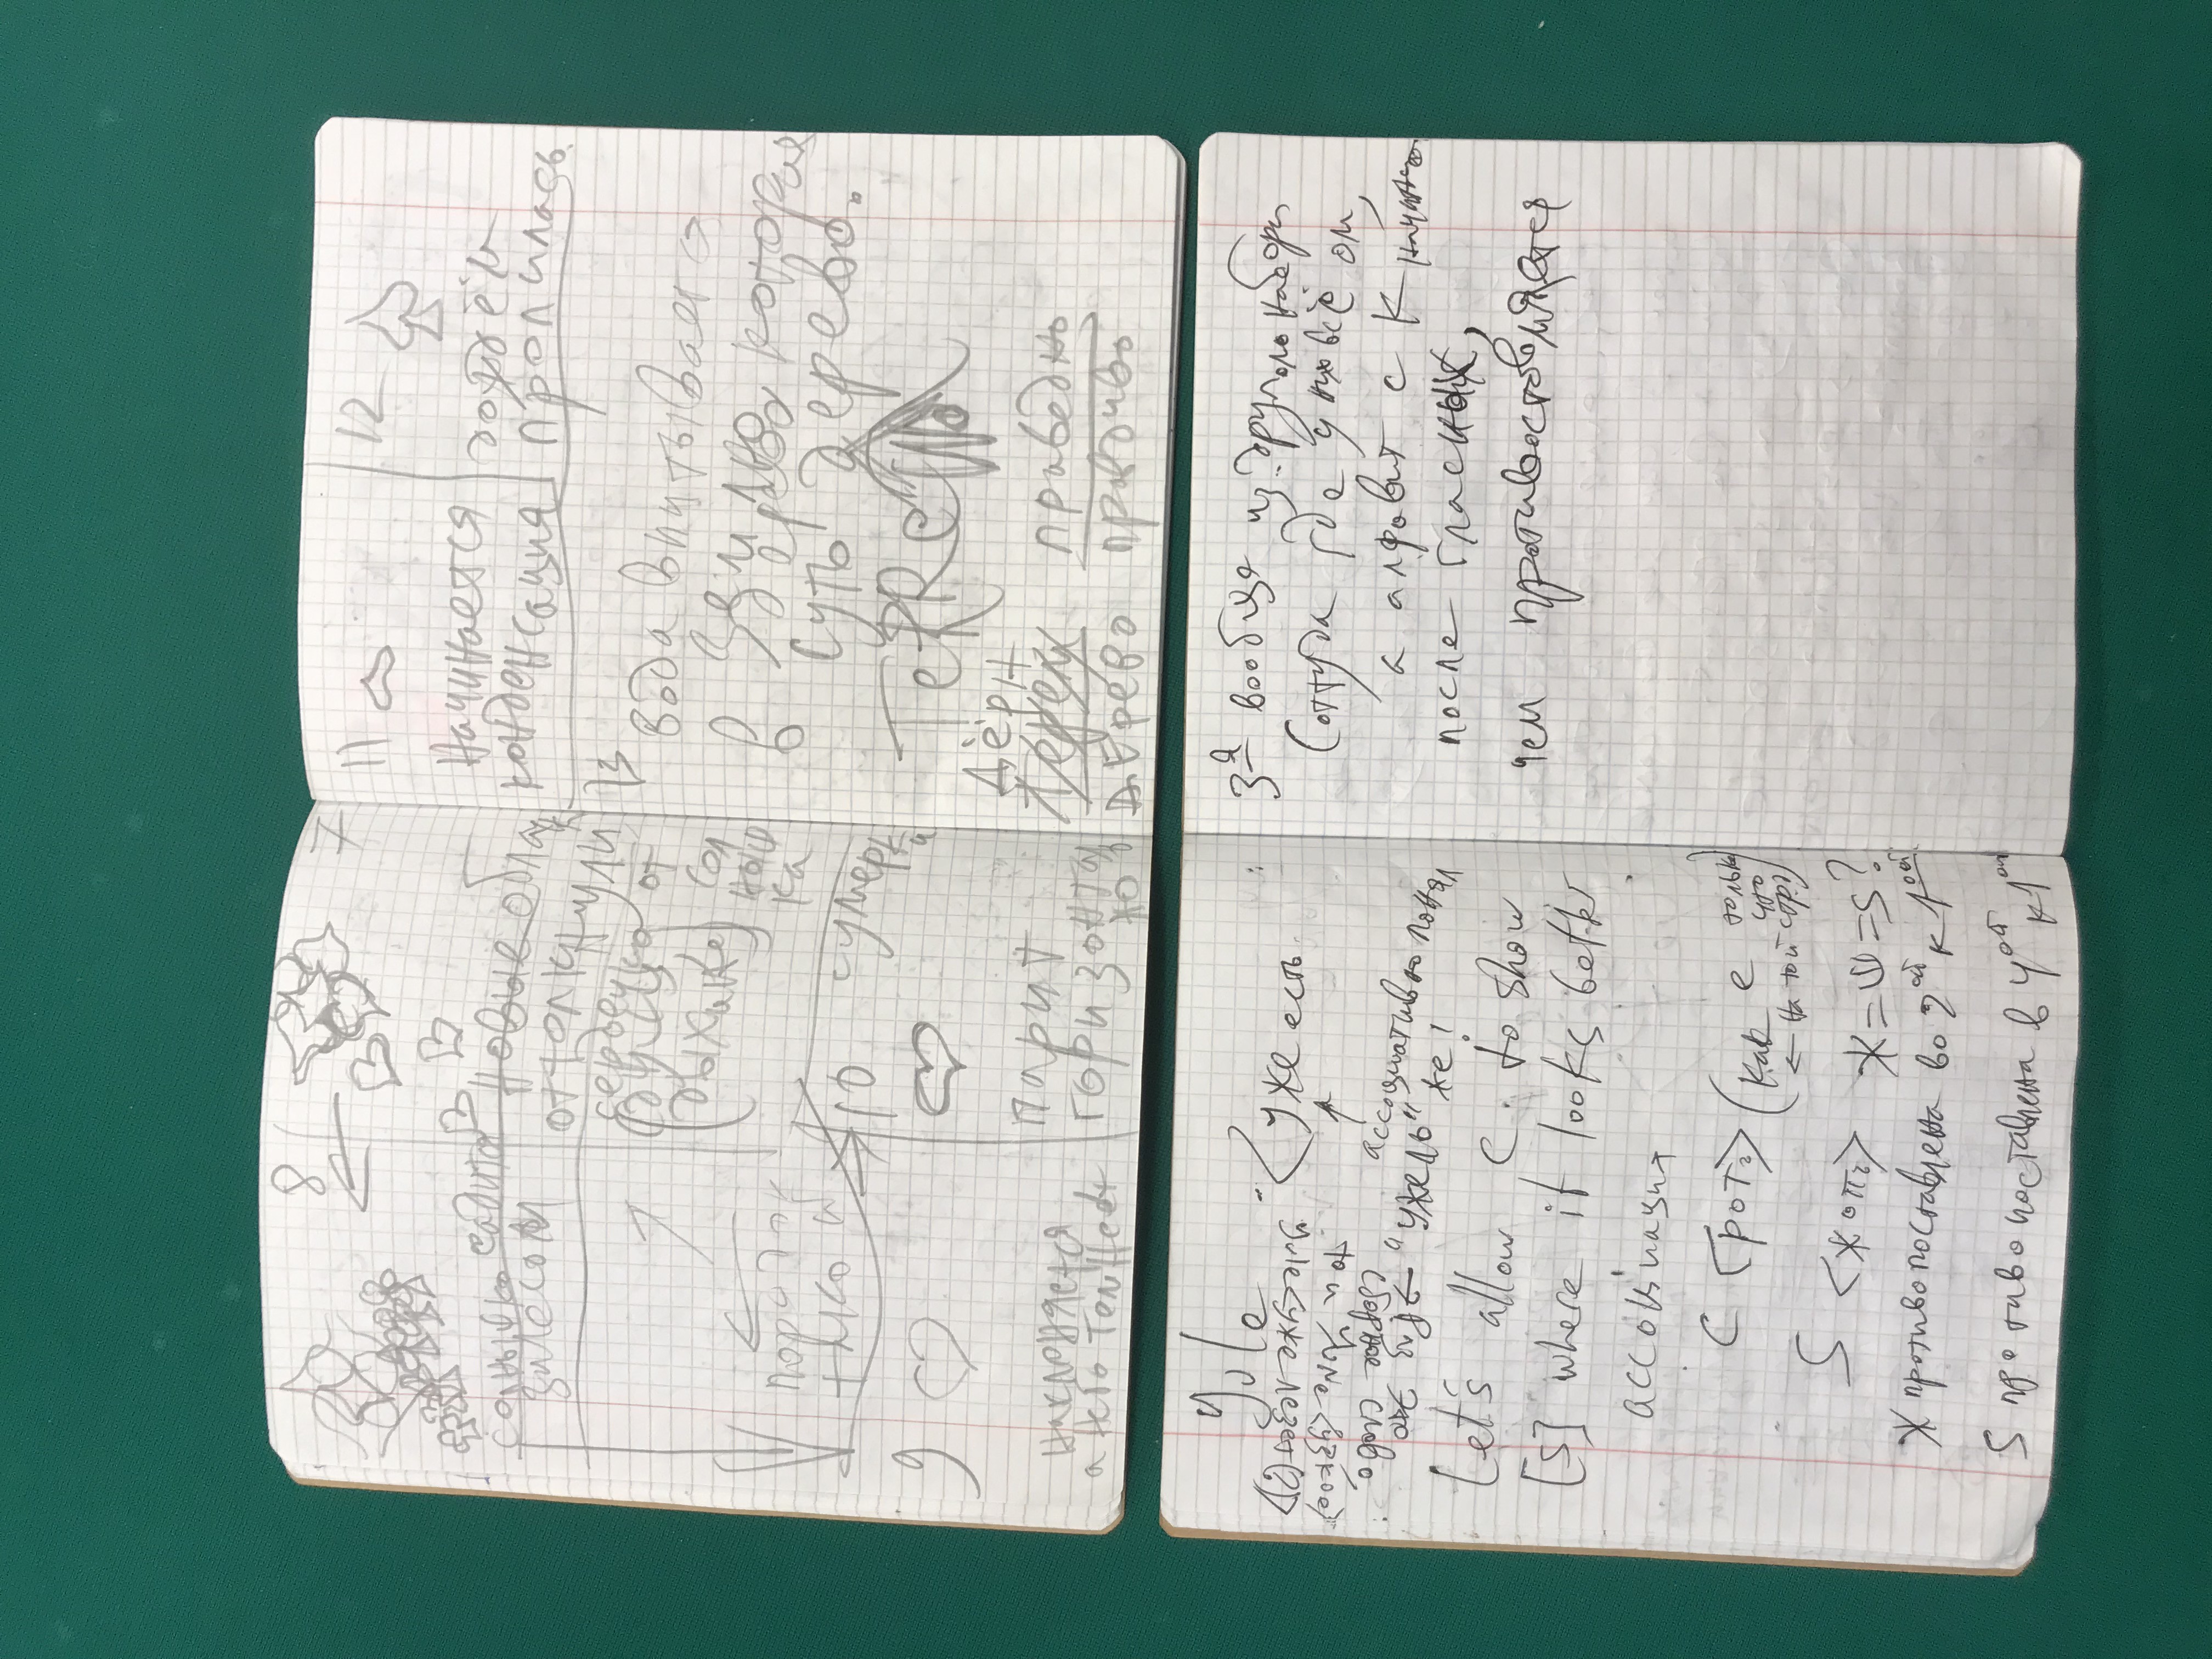 8
7
солнышко садится
за лесом
новые облака
оттолкнули
сердечко от
(дунув)
(дыханье)
сол
ныш
ка
9
10 сумерки
наклоняется
а животемнеет
парит
горизонталь
но
11
12
начинается
конденсация
дождём
пролилась.
13
вода впитывается
в землю которая
суть дерево.
TeRRa
Дёрн
Дерево
праведно
правдиво
yule
уже есть
ассоциативно понял
"ужель"
же!
сборное слово
Let's allow C to show
[s] where it looks better
ассоциация
C <рот>
(как e только
S <жоп>
Ж=Ш=S?
Ж противопоставлена во 2ой к 1ой
S противопоставлена в 4ой к 1ой
3я вообще из другого набора
(оттуда где у них всё ом,
а алфавит с К
после гласных,
чем противоставляется